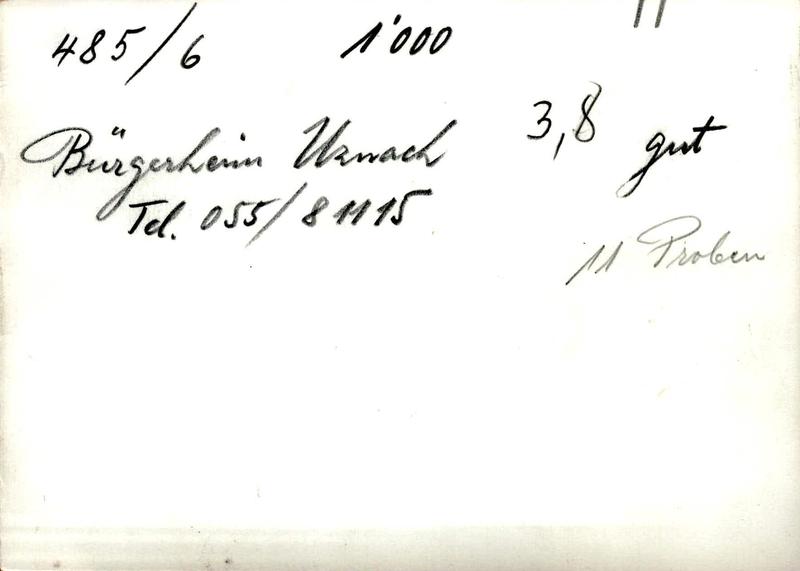 485/6 1'000
3,8 gut
Bürgerheim Uznach
Tel. 055/81115
11 Proben